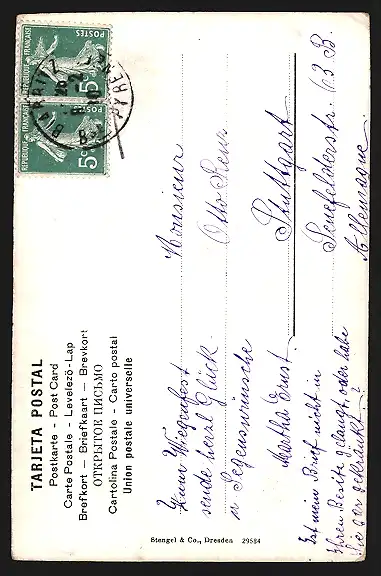 TARJETA POSTAL
Postkarte - Post Card
Carte Postale - Levelező-Lap
Brefkort — Briefkaart — Brevkort
ОТКРЫТОЕ ПИСЬМО
Cartolina Postale - Carto postal
Union postale universelle
REPUBLIQUE FRANÇAISE
POSTES
5c
REPUBLIQUE FRANÇAISE
POSTES
5c
BIARRITZ
Monsieur
Otto
Stuttgart
Senefelderstr. 63 B.
Allemagne.
Zum Wiegenfest
sende herzl. Glück-
u Segenswünsche
Martha Ernst.
Ist mein Brief nicht in
Ihren Besitz gelangt, oder habe
Sie der gekränkt?
Stengel & Co., Dresden 29584